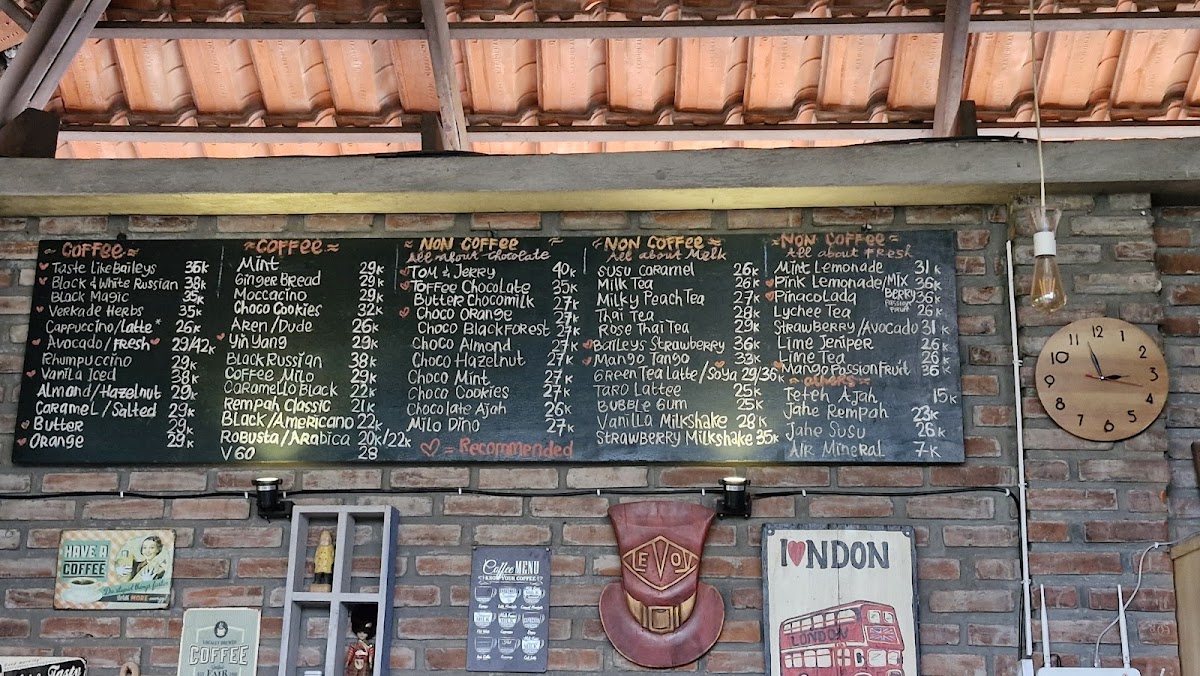 ~ COFFEE ~
Taste Like Baileys 36K
Black & White Russian 38K
Black Magic 35K
Verkade Herbs 35K
Cappuccino/Latte* 26K
Avocado/Fresh 29/42K
Rhumpuccino 29K
Vanila Iced 38K
Almond/Hazelnut 29K
Caramel/Salted 29K
Butter 29K
Orange 29K
≈ COFFEE ≈
Mint 29K
Ginger Bread 29K
Moccacino 29K
Choco Cookies 32K
Aren/Dude 26K
Yin Yang 29K
Black Russian 38K
Coffee Milo 29K
Caramello Black 22K
Rempah Classic 21K
Black/Americano 22K
Robusta/Arabica 20K/22K
V60 28
~ NON COFFEE ~
All about Chocolate
Tom & Jerry 40K
Toffee Chocolate 35K
Butter Chocomilk 27K
Choco Orange 27K
Choco Blackforest 27K
Choco Almond 27K
Choco Hazelnut 27K
Choco Mint 27K
Choco Cookies 27K
Chocolate Ajah 26K
Milo Dino 27K
= Recommended
≈ NON COFFEE ≈
All about Melk
Susu Caramel 26K
Milk Tea 26K
Milky Peach Tea 27K
Thai Tea 28K
Rose Thai Tea 29K
Baileys Strawberry 36K
Mango Tango 33K
Green Tea Latte/Soya 29/36K
Taro Lattee 25K
Bubble Gum 25K
Vanilla Milkshake 28K
Strawberry Milkshake 35K
≈ NON COFFEE ≈
All about FRESH
Mint Lemonade 31K
Pink Lemonade/MIX BERRY 36K
Pinacolada 36K
Lychee Tea 26K
Strawberry/Avocado 31K
Lime Jeniper 26K
Lime Tea 26K
Mango Passion Fruit 36K
≈ others ≈
Teteh Ajah 15K
Jahe Rempah 23K
Jahe Susu 26K
Air Mineral 7K
12
11 1
10 2
9 3
8 4
7 5
6
HAVE A
COFFEE
LOCALLY BREWED
COFFEE
FAIR
Taste
Coffee MENU
KNOW YOUR COFFEE
LEVOI
I NDON
LONDON